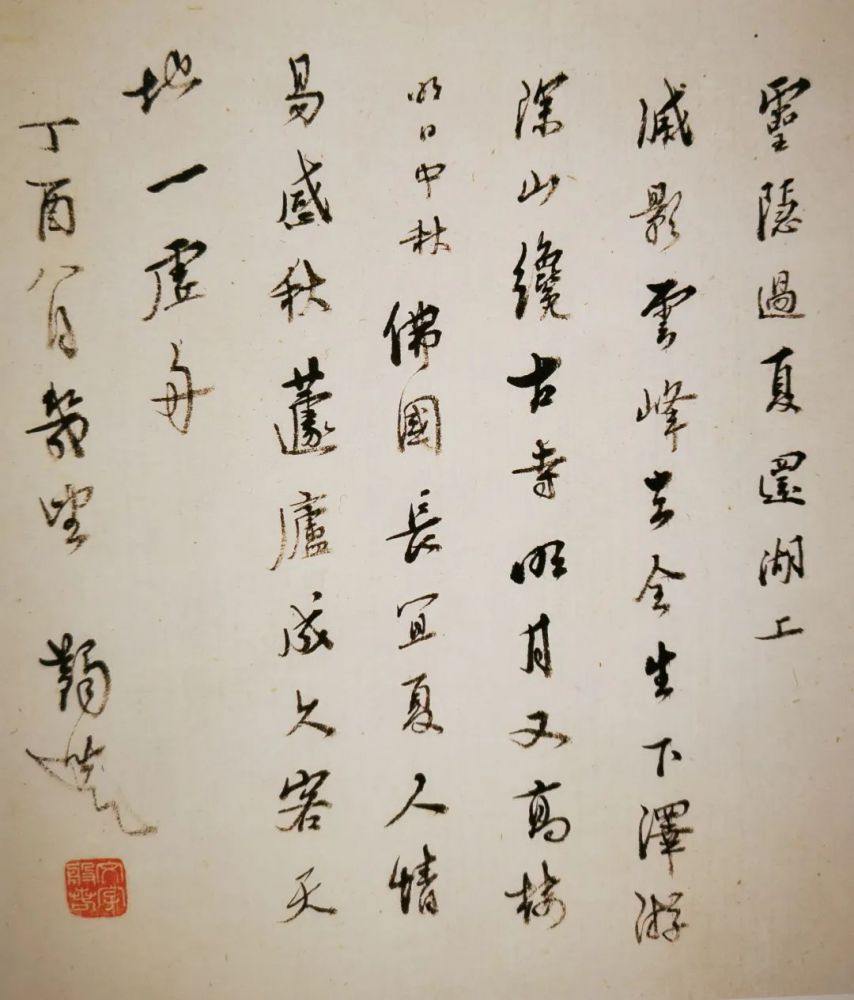 靈隱過夏還湖上
滅影雲峰去全生下澤游
深山纔古寺明月又高樓
明日中秋佛國長宜夏人情
易感秋蘧廬成久客天
地一虛舟
丁酉八月幾望 蠲叟